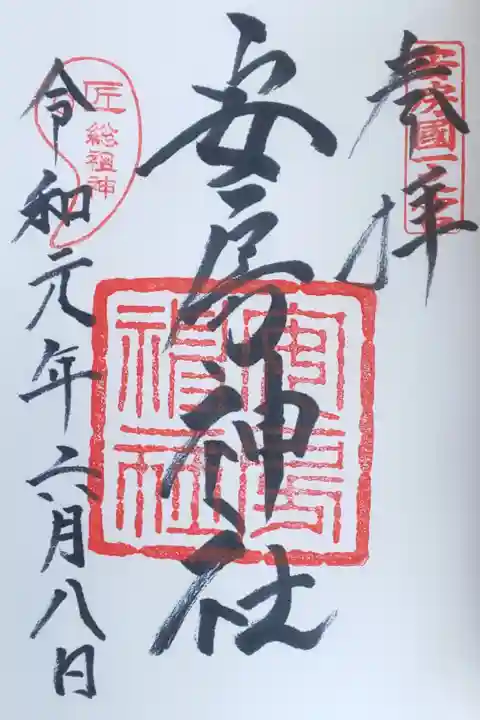 奉拝
安房國一之宮
安房神社
安房神社
匠
総祖神
令和元年六月八日